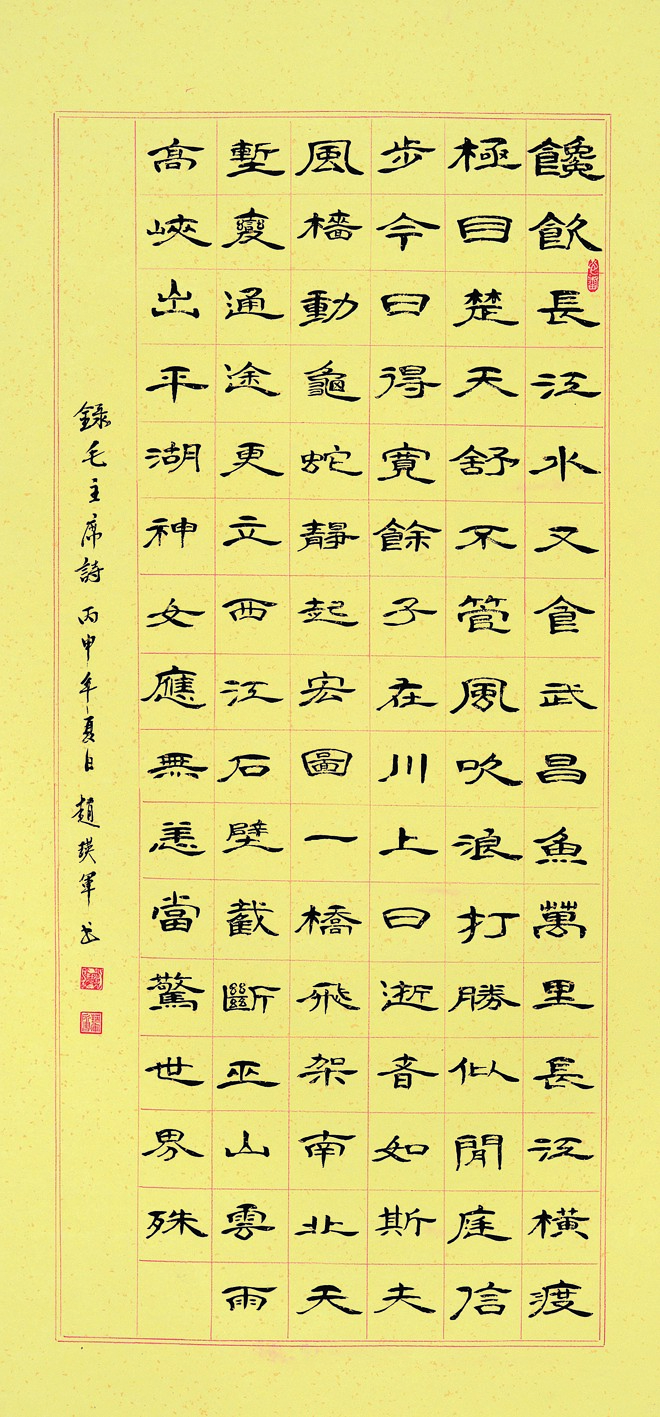 饞飲長江水又食武昌魚萬里長江橫渡
極目楚天舒不管風吹浪打勝似閒庭信
步今日得寬餘子在川上曰逝者如斯夫
風檣動龜蛇靜起宏圖一橋飛架南北天
塹變通途更立西江石壁截斷巫山雲雨
高峽出平湖神女應無恙當驚世界殊
錄毛主席詩 丙申年夏日 趙瑛軍書